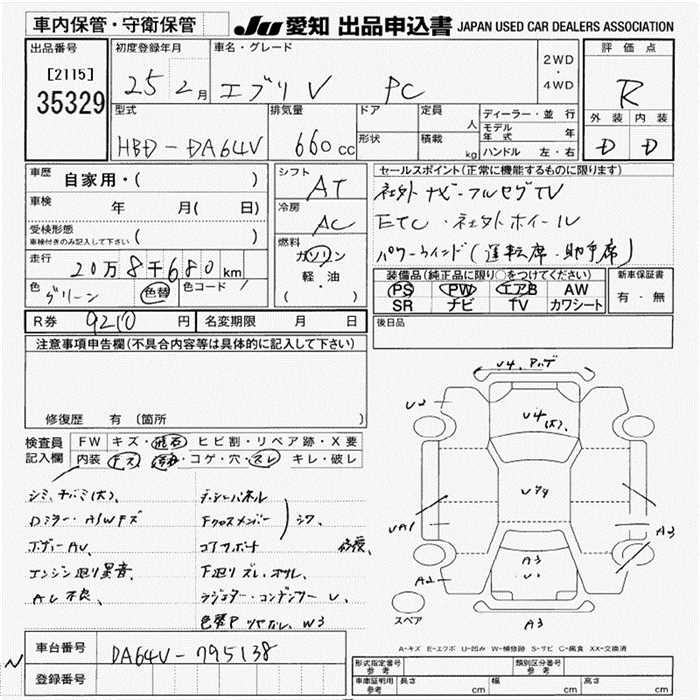 車内保管・守衛保管
JU 愛知 出品申込書 JAPAN USED CAR DEALERS ASSOCIATION
出品番号
[2115]
35329
初度登録年月
25 2月
車名・グレード
エブリV PC
2WD
・
4WD
評価点
R
外装 内装
D D
型式
HBD-DA64V
排気量
660cc
ドア
形状
定員
人
積載
kg
ディーラー・並行
モデル年式 年
ハンドル 左・右
車歴 自家用・( )
車検 年 月(日)
受検形態
車検付きのみ記入して下さい ( )
走行 20万8千680km
色 グリーン 色替 色コード
シフト
AT
冷房
AC
燃料
ガソリン
軽・油
( )
セールスポイント(正常に機能するものに限ります)
社外ナビ-フルセグTV
ETC・社外ホイール
パワーウインド(運転席・助手席)
装備品(純正品に限り○をつけてください)
PS PW エアB AW
SR ナビ TV カワシート
新車保証書
有・無
R券 9210円 名変期限 月 日
後日品
注意事項申告欄(不具合内容等は具体的に記入して下さい)
修復歴 有 〔箇所 〕
検査員
記入欄
FW キズ・飛石・ヒビ割・リペア跡・X要
内装 コゲ・穴・スレ・キレ・破レ
Dミラー・A/Wキズ
ボディーAU、
エンジン廻り異音、
AC不良、
シワ
修復、
下廻りズレ・
ラジエター・コンデンサー U、
色替P W3
U4.
U2
U4(大)
A3
A2
A3
A3
スペア
A-キズ E-エクボ U-凹み W-補修跡 S-サビ C-腐食 XX-交換済
車台番号 DA64V-795138
登録番号
型式指定番号
参考
類別区分番号
参考
車庫証明用
参考
長さ cm 幅 cm 高さ cm